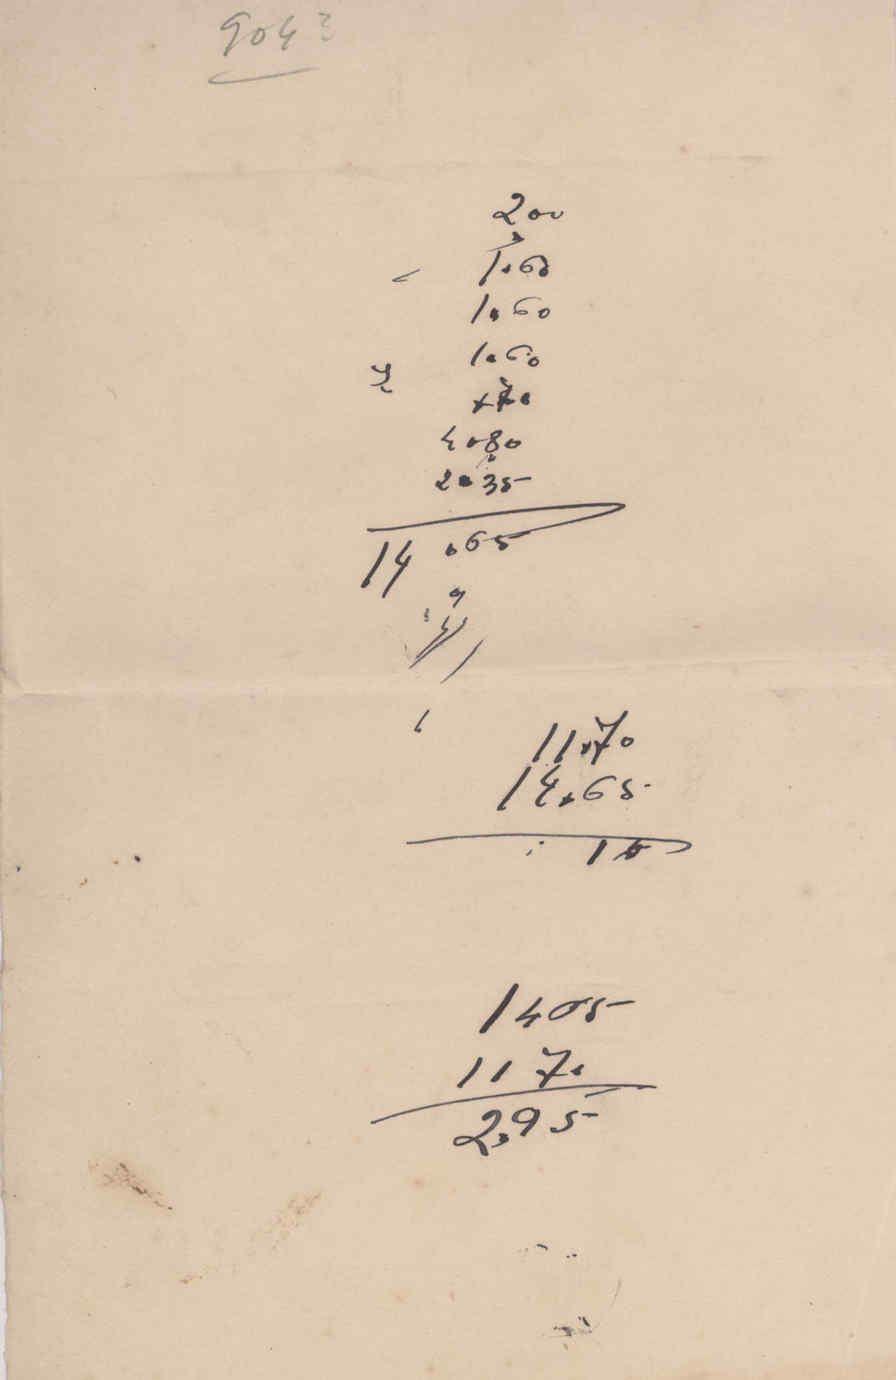 904
200
1.60
1.60
1.60
.70
4.80
2.35
14.65
11.70
14.65
1405
1170
2,95